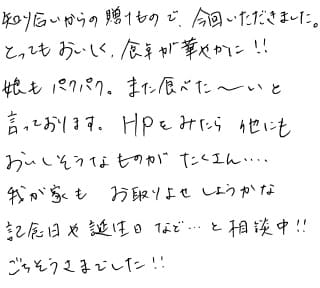 知り合いからの贈りもので、今回いただきました。
とってもおいしく、食卓が華やかに!!
娘もパクパク。また食べた〜いと
言っております。HPをみたら他にも
おいしそうなものがたくさん....
我が家もお取りよせしようかな
記念日や誕生日など…と相談中!!
ごちそうさまでした!!